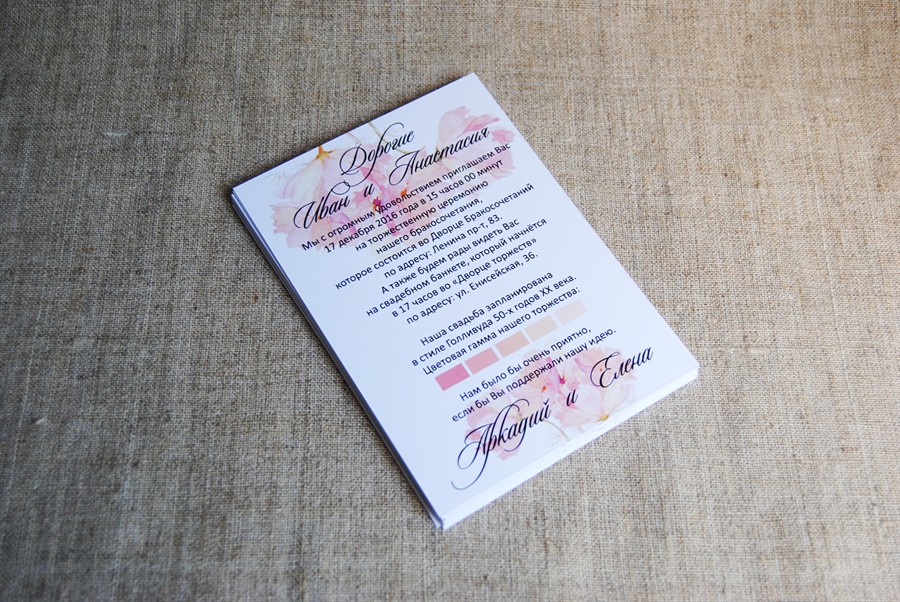 Дорогие
Иван и Анастасия
Мы с огромным удовольствием приглашаем Вас
17 декабря 2016 года в 15 часов 00 минут
на торжественную церемонию
нашего бракосочетания,
которое состоится во Дворце Бракосочетаний
по адресу: Ленина пр-т, 83.
А также будем рады видеть Вас
на свадебном банкете, который начнётся
в 17 часов во «Дворце торжеств»
по адресу: ул. Енисейская, 36.
Наша свадьба запланирована
в стиле Голливуда 50-х годов XX века.
Цветовая гамма нашего торжества:
Нам было бы очень приятно,
если бы Вы поддержали нашу идею.
Аркадий и Елена